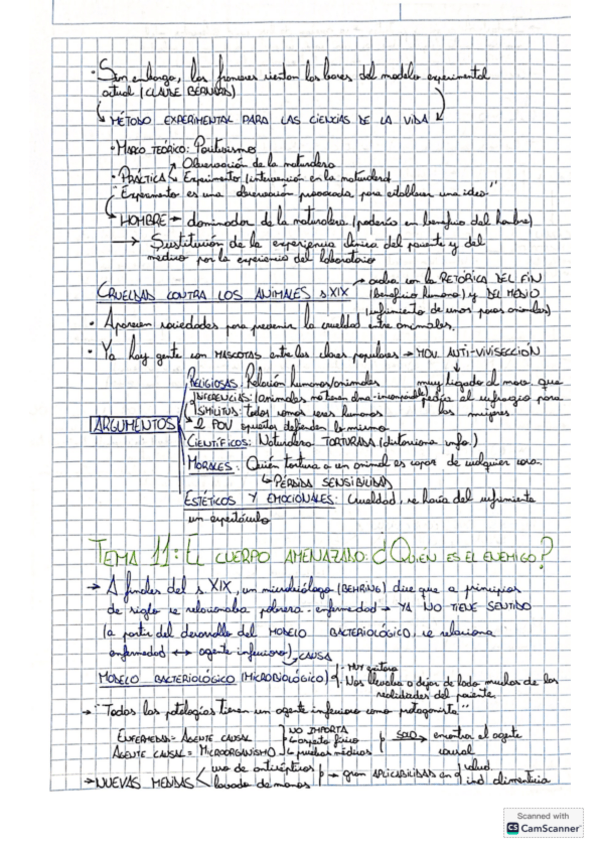 · Sin embargo, los franceses sientan las bases del modelo experimental
actual (CLAUDE BERNARD)
MÉTODO EXPERIMENTAL PARA LAS CIENCIAS DE LA VIDA
· MARCO TEÓRICO: Positivismo
Observación de la naturaleza
· PRÁCTICA Experimento (intervención en la naturaleza)
"Experimento es una observación provocada para establecer una idea"
HOMBRE → dominador de la naturaleza (poderío en beneficio del hombre)
→ Sustitución de la experiencia clínica del paciente y del
médico por la experiencia del laboratorio
CRUELDAD CONTRA LOS ANIMALES s.XIX → acaba con la RETÓRICA DEL FIN
(beneficio humano) y DEL MEDIO
(sufrimiento de unos pocos animales)
· Aparecen sociedades para prevenir la crueldad entre animales.
· Ya hay gente con MASCOTAS entre las clases populares → MOV. ANTI-VIVISECCIÓN
RELIGIOSAS: Relación humanos/animales
muy ligado al mov. que
DIFERENCIAS: (animales no tienen alma - incomparable)
pedía el sufragio para
SIMILITUD: todos somos seres humanos
las mujeres
ARGUMENTOS
2 POV opuestos defienden lo mismo
CIENTÍFICOS: Naturaleza TORTURADA (distorsiona info.)
MORALES: Quién tortura a un animal es capaz de cualquier cosa.
↳ PÉRDIDA SENSIBILIDAD
ESTÉTICOS Y EMOCIONALES: Crueldad, se hacía del sufrimiento
un espectáculo
TEMA 11: EL CUERPO AMENAZADO: ¿QUIÉN ES EL ENEMIGO?
→ A finales del s XIX, un microbiólogo (BEHRING) dice que a principios
de siglo se relacionaba pobreza - enfermedad → YA NO TIENE SENTIDO
(a partir del desarrollo del MODELO BACTERIOLÓGICO, se relaciona
enfermedad ↔ agente infeccioso) → CAUSA
MODELO BACTERIOLÓGICO (MICROBIOLÓGICO)
- Muy exitoso
- Nos llevaba a dejar de lado muchas de las
realidades del paciente
→ "Todas las patologías tienen un agente infeccioso como protagonista"
ENFERMEDAD = AGENTE CAUSAL
NO IMPORTA
↳ aspecto físico
SOLO → encontrar el agente
AGENTE CAUSAL = MICROORGANISMO
↳ pruebas médicas
causal
→ NUEVAS MEDIDAS
uso de antisépticos
lavado de manos
→ gran APLICABILIDAD en
salud
ind. alimenticia
Scanned with
CS CamScanner